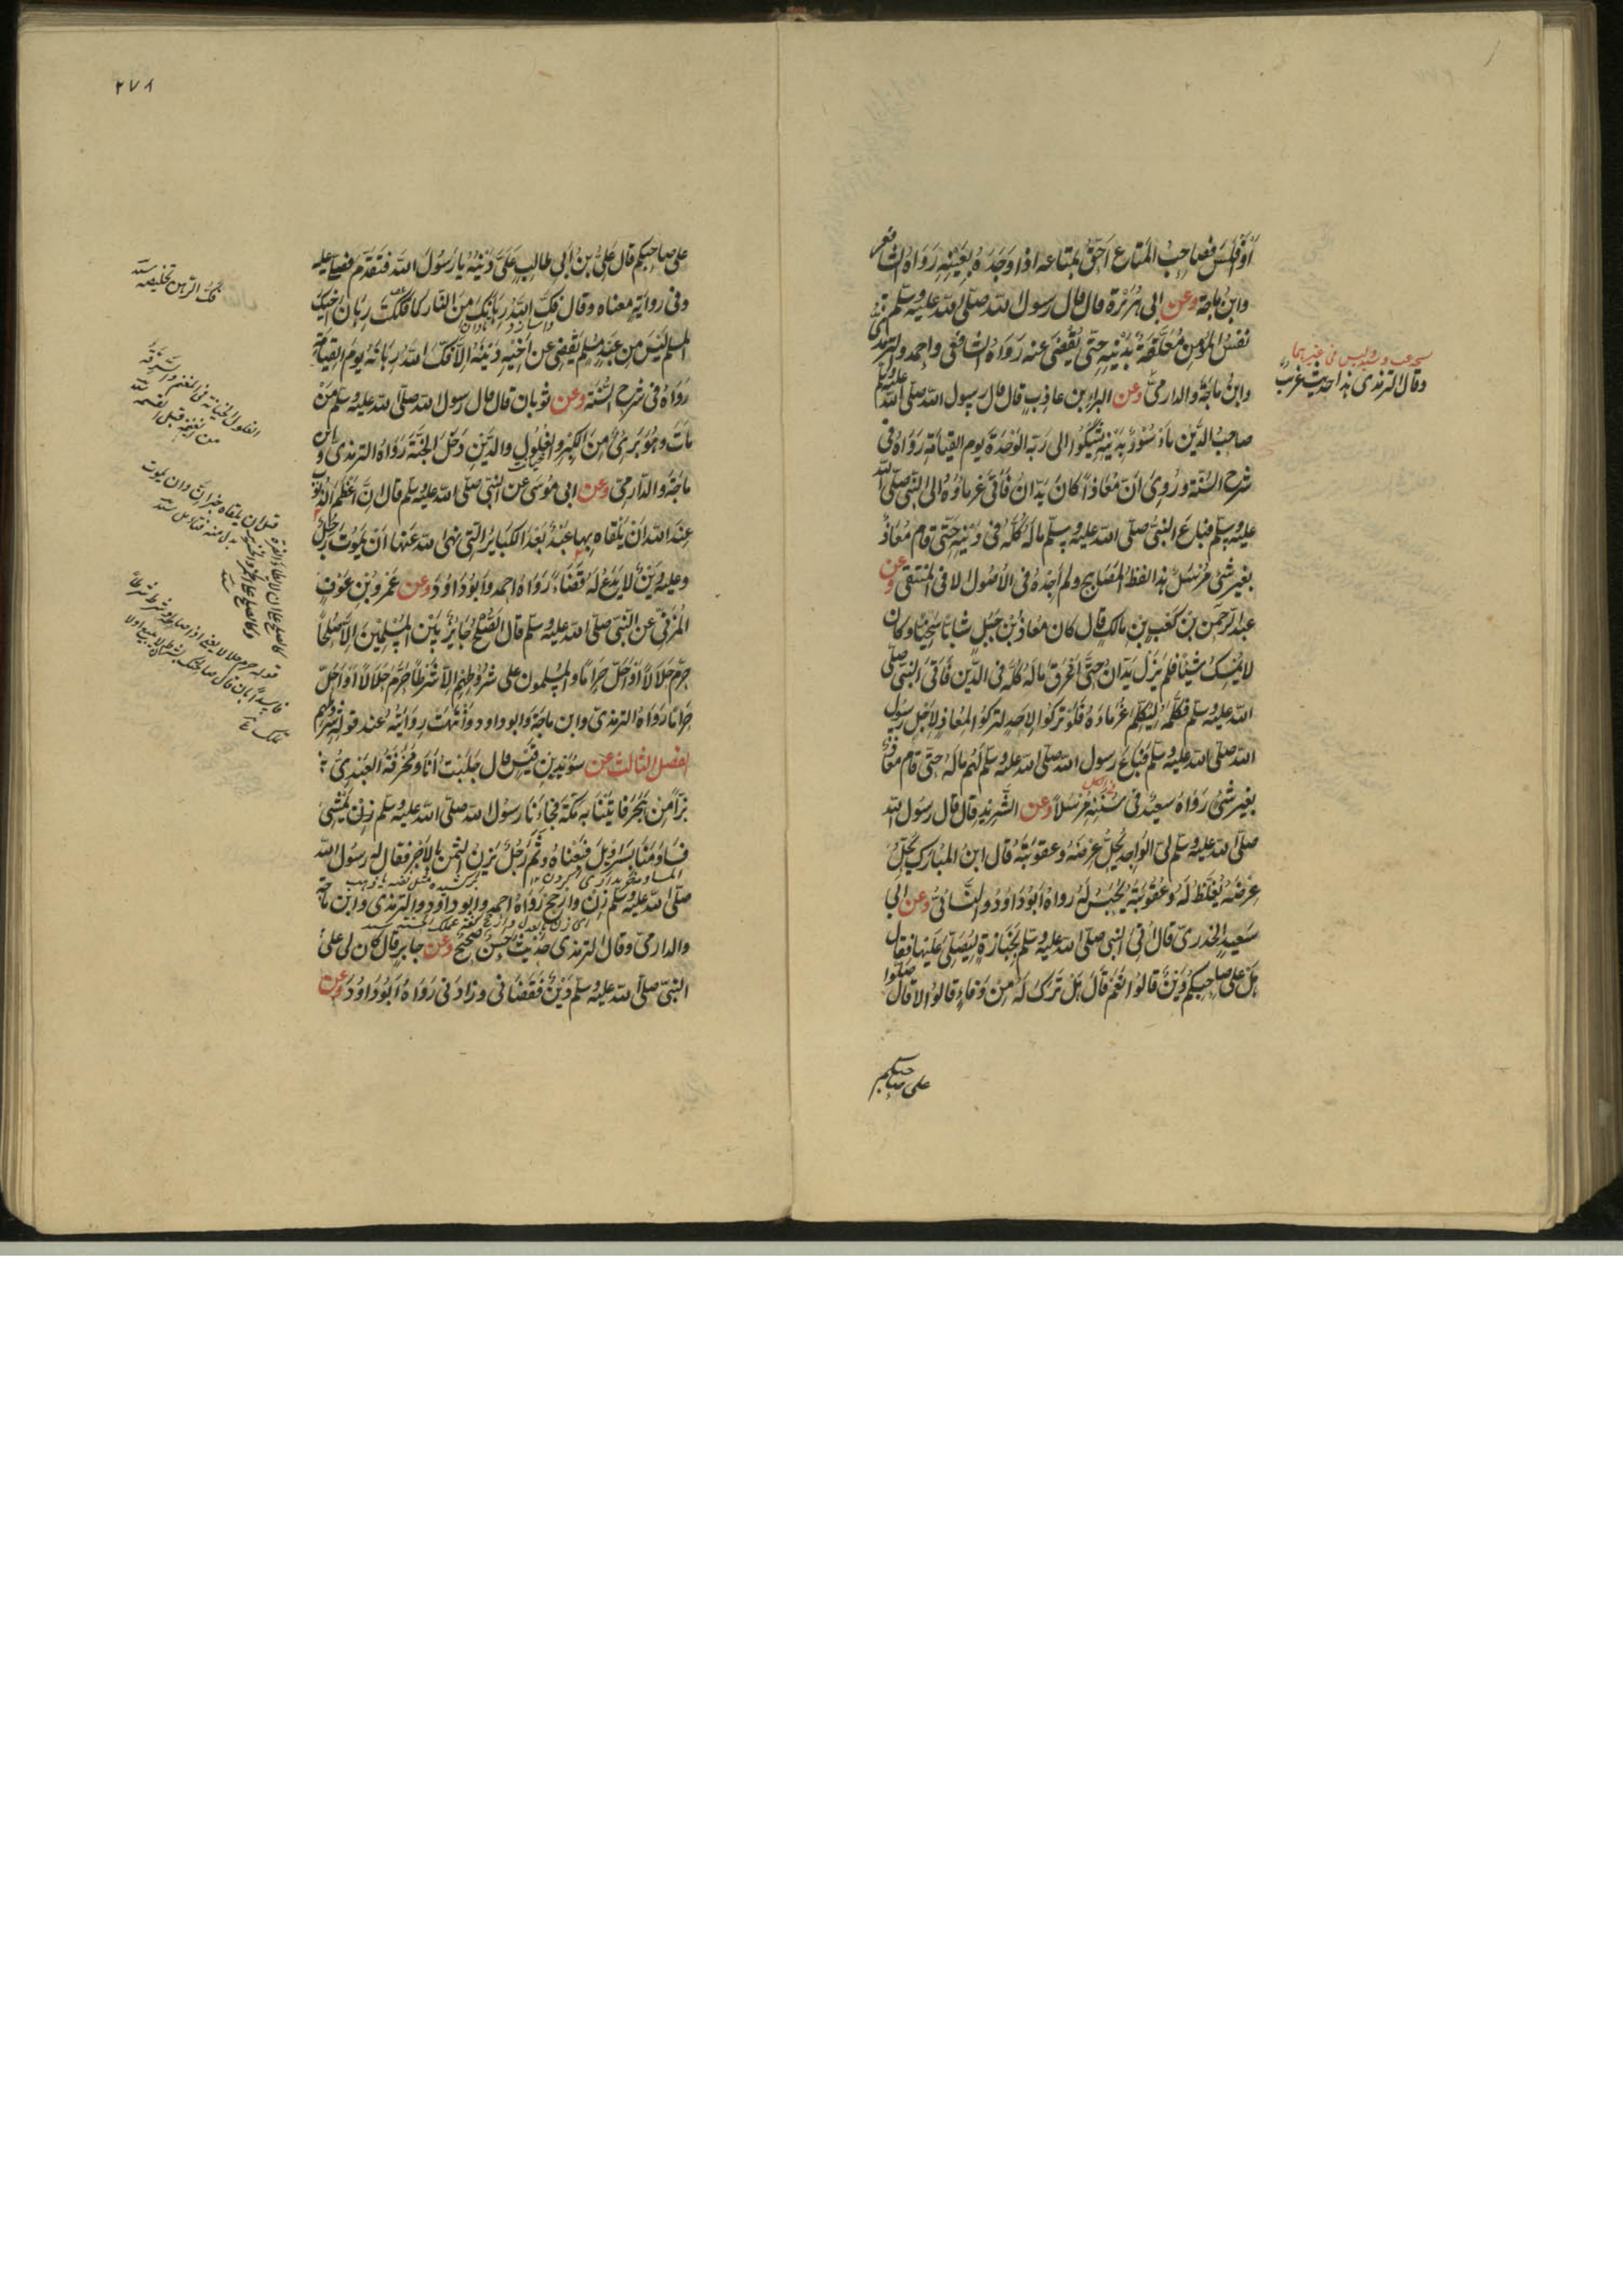 أو أفلس فصاحب المتاع أحق بمتاعه إذا وجده بعينه رواه الشافعي
وابن ماجة وعن أبي هريرة قال قال رسول الله صلى الله عليه وسلم
نفس المؤمن معلقة بدينه حتى يقضى عنه رواه الشافعي وأحمد والترمذي
وابن ماجة والدارمي وعن البراء بن عازب قال قال رسول الله صلى الله عليه وسلم
صاحب الدين مأسور بدينه يشكو إلى ربه الوحدة يوم القيامة رواه في
شرح السنة وروي أن معاذا كان يدان فأتى غرماؤه إلى النبي صلى الله
عليه وسلم فباع النبي صلى الله عليه وسلم ماله كله في دينه حتى قام معاذ
بغير شيء مرسل هذا لفظ المصابيح ولم أجده في الأصول إلا في المنتقى وعن
عبد الرحمن بن كعب بن مالك قال كان معاذ بن جبل شابا سخيا وكان
لا يمسك شيئا فلم يزل يدان حتى أغرق ماله كله في الدين فأتى النبي صلى
الله عليه وسلم فكلمه ليكلم غرماءه فلو تركوا لأحد لتركوا لمعاذ لأجل رسول
الله صلى الله عليه وسلم فباع رسول الله صلى الله عليه وسلم لهم ماله حتى قام معاذ
بغير شيء رواه سعيد في سننه مرسلا وعن الشريد قال قال رسول الله
صلى الله عليه وسلم لي الواجد يحل عرضه وعقوبته قال ابن المبارك يحل
عرضه يغلظ له وعقوبته يحبس له رواه أبو داود والنسائي وعن أبي
سعيد الخدري قال أتي النبي صلى الله عليه وسلم بجنازة ليصلي عليها فقال
هل على صاحبكم دين قالوا نعم قال هل ترك له من وفاء قالوا لا قال صلوا
على صاحبكم
وقال الترمذي هذا حديث غريب
٢٧٨
على صاحبكم قال علي بن أبي طالب علي دينه يا رسول الله فتقدم فصلى عليه
وفي رواية معناه وقال فك الله رهانك من النار كما فككت رهان أخيك
المسلم ليس من عبد مسلم يقضي عن أخيه دينه إلا فك الله رهانه يوم القيامة
رواه في شرح السنة وعن ثوبان قال قال رسول الله صلى الله عليه وسلم من
مات وهو بريء من الكبر والغلول والدين دخل الجنة رواه الترمذي وابن
ماجة والدارمي وعن أبي موسى عن النبي صلى الله عليه وسلم قال إن أعظم الذنوب
عند الله أن يلقاه بها عبد بعد الكبائر التي نهى الله عنها أن يموت رجل
وعليه دين لا يدع له قضاء رواه أحمد وأبو داود وعن عمرو بن عوف
المزني عن النبي صلى الله عليه وسلم قال الصلح جائز بين المسلمين إلا صلحا
حرم حلالا أو أحل حراما والمسلمون على شروطهم إلا شرطا حرم حلالا أو أحل
حراما رواه الترمذي وابن ماجة وأبو داود وانتهت روايته عند قوله شروطهم
الفصل الثالث عن سويد بن قيس قال جلبت أنا ومخرفة العبدي
بزا من هجر فأتينا به مكة فجاءنا رسول الله صلى الله عليه وسلم يمشي
فساومنا بسراويل فبعناه وثم رجل يزن بالأجر فقال له رسول الله
صلى الله عليه وسلم زن وأرجح رواه أحمد وأبو داود والترمذي وابن ماجة
والدارمي وقال الترمذي حديث حسن صحيح وعن جابر قال كان لي على
النبي صلى الله عليه وسلم دين فقضاني وزادني رواه أبو داود وعن
فك الرهن تخليصه
الغلول الخيانة في المغنم والسرقة
من الغنيمة قبل القسمة